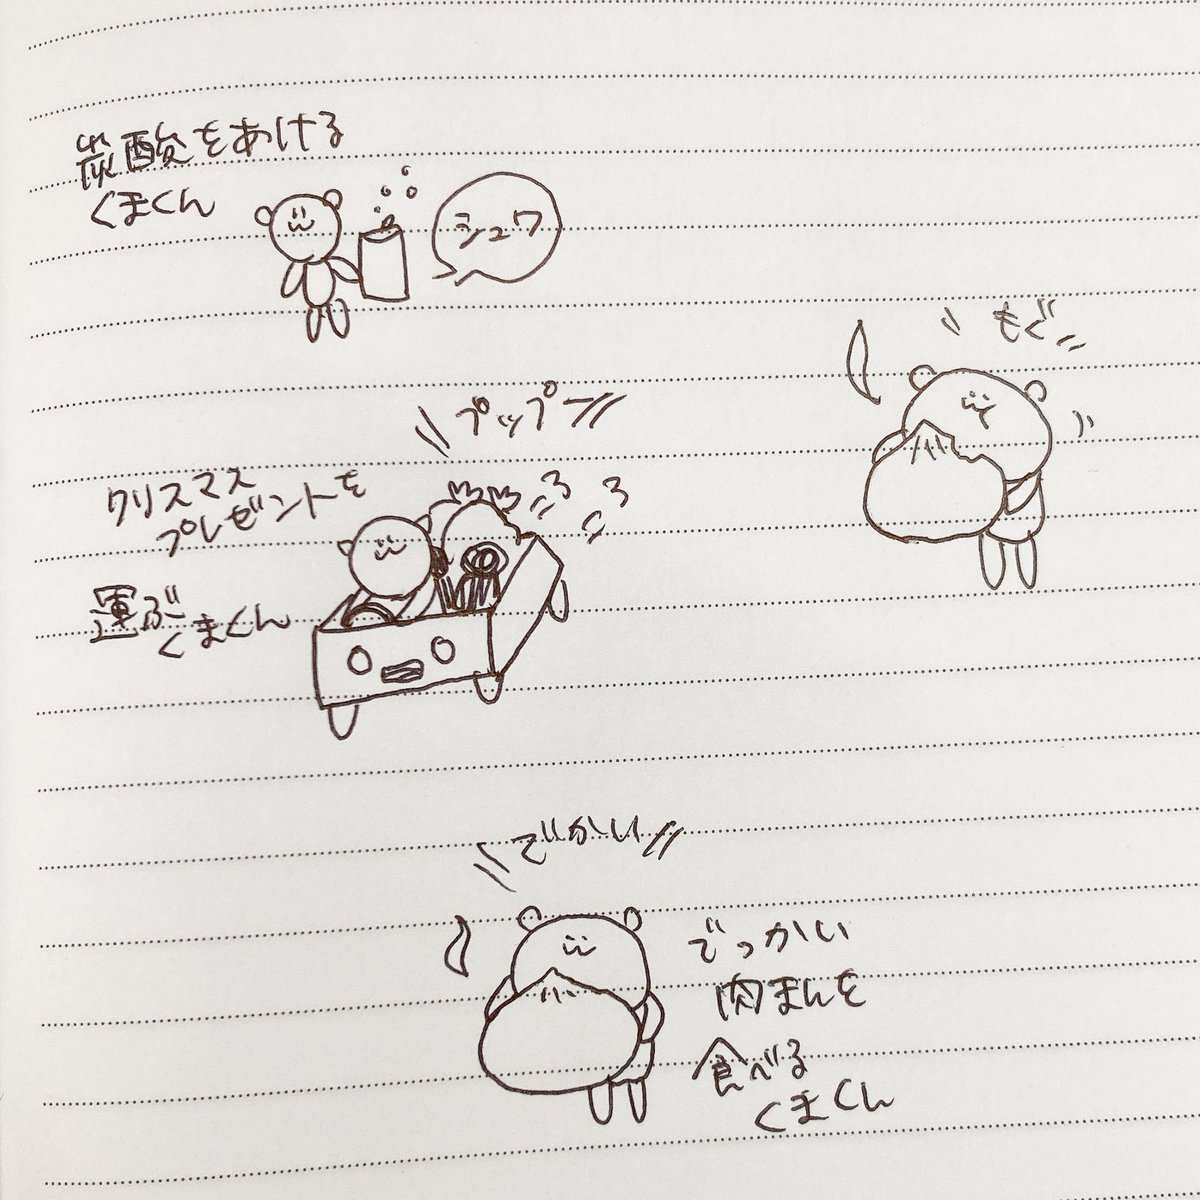 炭酸をあける
くまくん
シュワ
もぐ
プップー
クリスマス
プレゼントを
運ぶ
くまくん
でかい
でっかい
肉まんを
食べる
くまくん